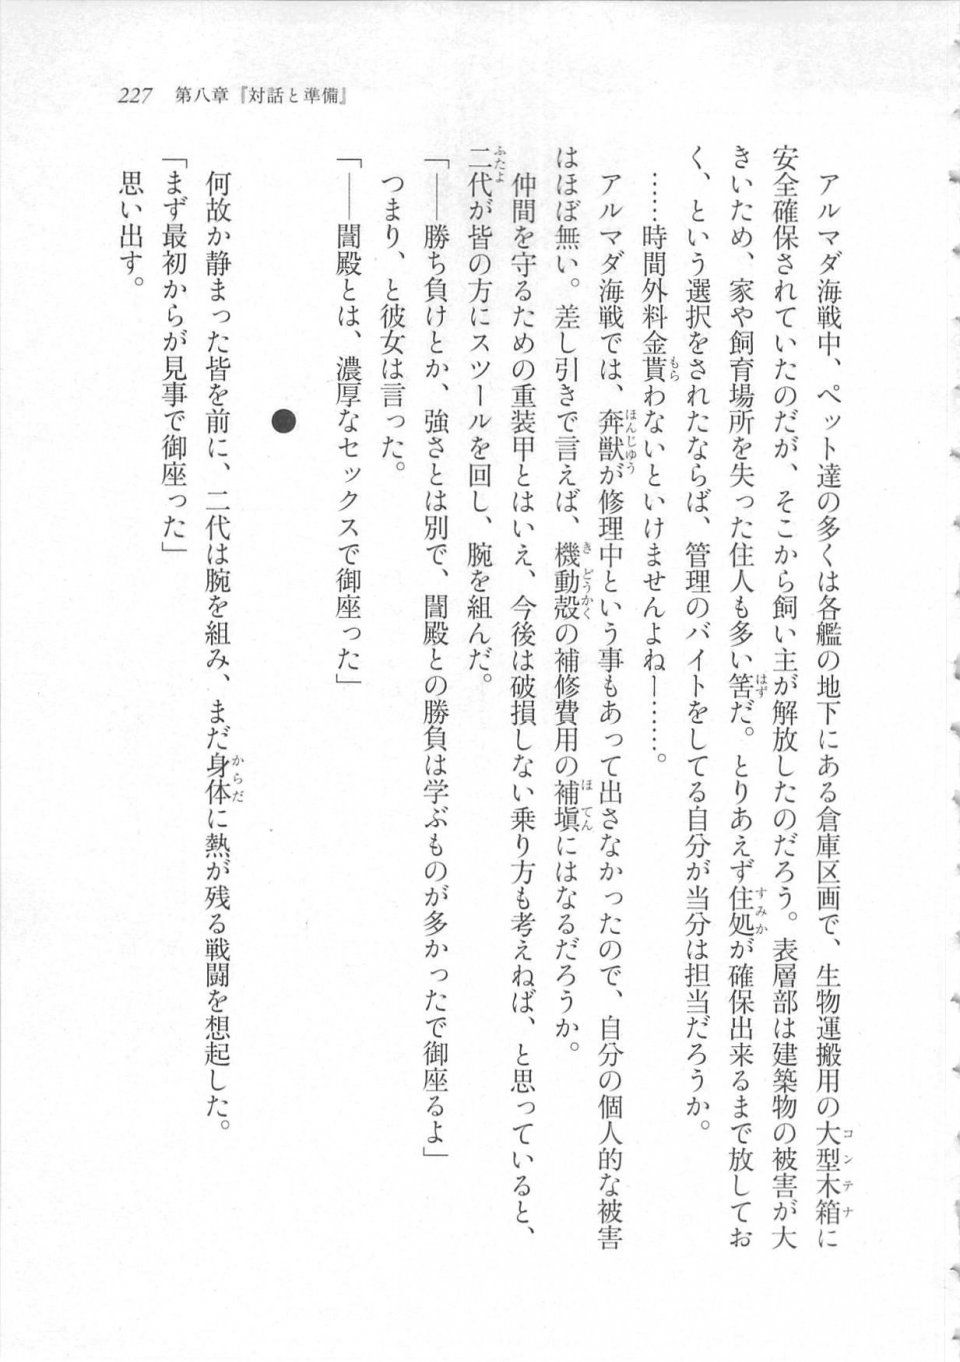 227 第八章『対話と準備』
アルマダ海戦中、ペット達の多くは各艦の地下にある倉庫区画で、生物運搬用の大型木箱に
安全確保されていたのだが、そこから飼い主が解放したのだろう。表層部は建築物の被害が大
きいため、家や飼育場所を失った住人も多い筈だ。とりあえず住処が確保出来るまで放してお
く、という選択をされたならば、管理のバイトをしてる自分が当分は担当だろうか。
……時間外料金貰わないといけませんよねー……。
アルマダ海戦では、奔獣が修理中という事もあって出さなかったので、自分の個人的な被害
はほぼ無い。差し引きで言えば、機動殻の補修費用の補塡にはなるだろうか。
仲間を守るための重装甲とはいえ、今後は破損しない乗り方も考えねば、と思っていると、
二代が皆の方にスツールを回し、腕を組んだ。
「――勝ち負けとか、強さとは別で、誾殿との勝負は学ぶものが多かったで御座るよ」
つまり、と彼女は言った。
「――誾殿とは、濃厚なセックスで御座った」
●
何故か静まった皆を前に、二代は腕を組み、まだ身体に熱が残る戦闘を想起した。
「まず最初からが見事で御座った」
思い出す。